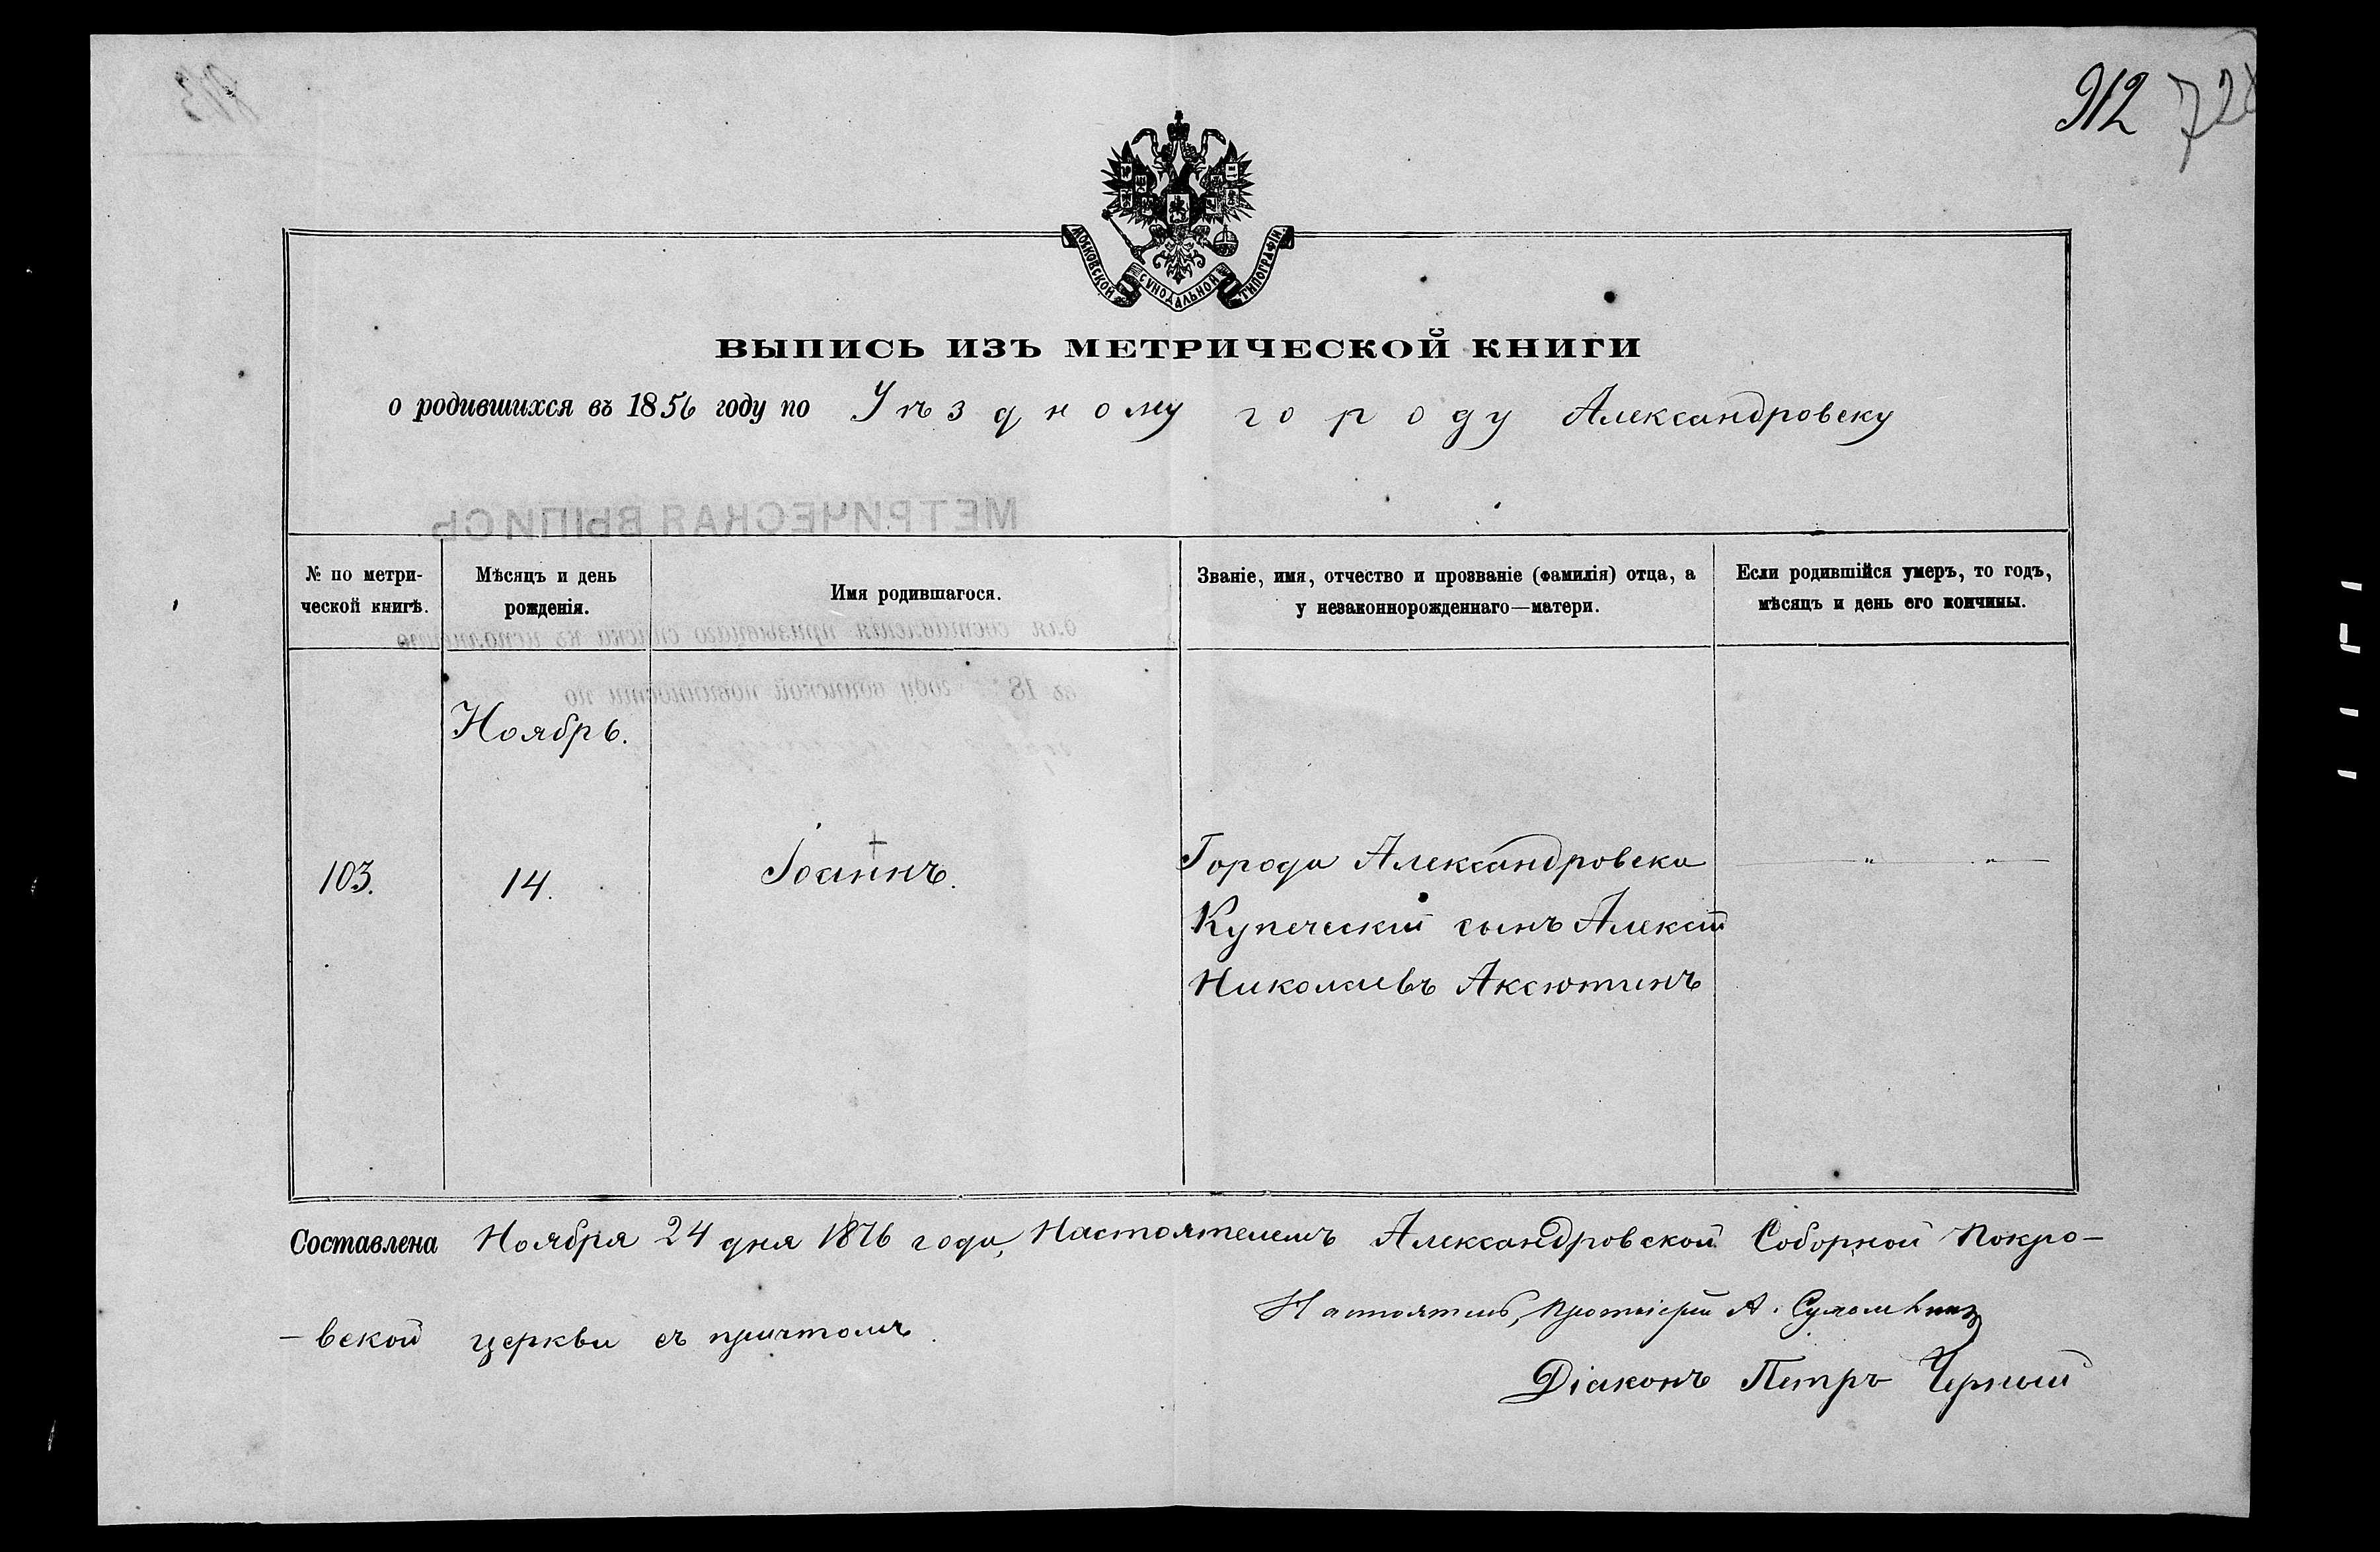 912 728
МОСКОВСКОЙ СѴНОДАЛЬНОЙ ТИПОГРАФІИ.
ВЫПИСЬ ИЗЪ МЕТРИЧЕСКОЙ КНИГИ
о родившихся въ 1856 году по Уѣздному городу Александровску
МЕТРИЧЕСКАЯ ВЫПИСЬ
№ по метри-
ческой книгѣ.
Мѣсяцъ и день
рожденія.
Имя родившагося.
Званіе, имя, отчество и прозваніе (фамилія) отца, а
у незаконнорожденнаго—матери.
Если родившійся умеръ, то годъ,
мѣсяцъ и день его кончины.
для составленія призывнаго списка къ исполненію
въ 18 году воинской повинности по
Ноябрь.
103.
14.
Іоаннъ.
Города Александровска
Купеческій сынъ Алексѣй
Николаевъ Аксютинъ
— " — " —
Составлена Ноября 24 дня 1876 года, Настоятелемъ Александровской Соборной Покро-
-вской церкви съ причтомъ.
Настоятель, Протоіерей А.
Діаконъ Петръ Черный